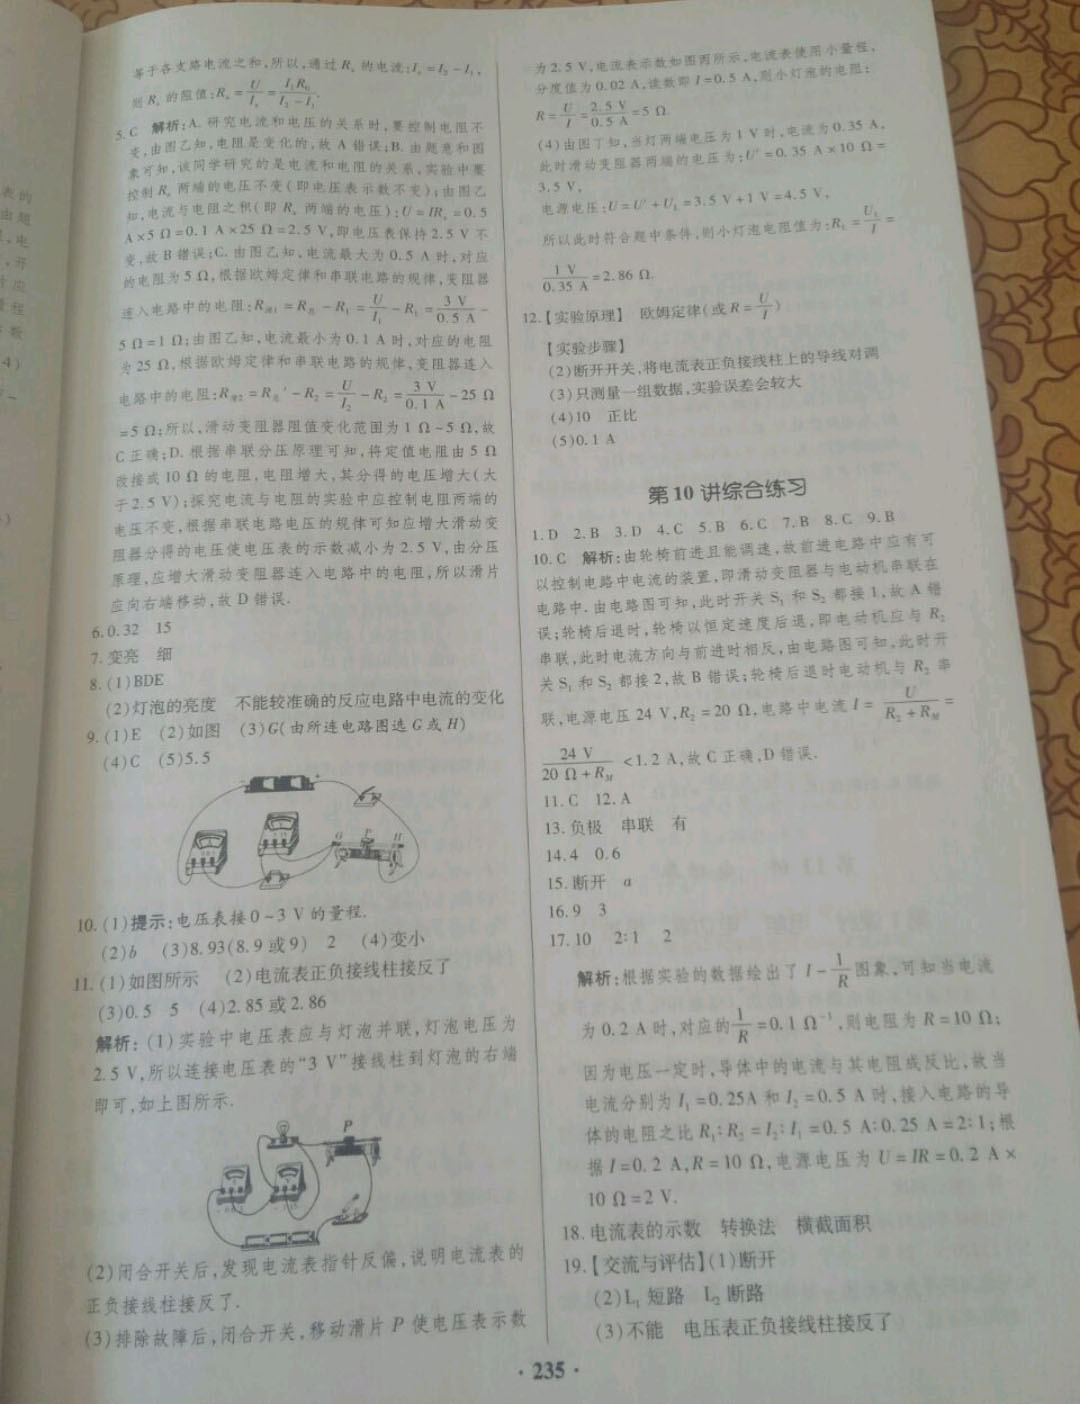 等于各支路电流之和,所以,通过 Rx 的电流:Ix=I2-I1,
则 Rx 的阻值:Rx=U/Ix=I1R0/(I2-I1).
5.C 解析:A.研究电流和电压的关系时,要控制电阻不
变,由图乙知,电阻是变化的,故 A 错误;B.由题意和图
象可知,该同学研究的是电流和电阻的关系,实验中要
控制 Rx 两端的电压不变(即电压表示数不变);由图乙
知,电流与电阻之积(即 Rx 两端的电压):U=IRx=0.5
A×5 Ω=0.1 A×25 Ω=2.5 V,即电压表保持2.5 V不
变,故 B 错误;C.由图乙知,电流最大为 0.5 A 时,对应
的电阻为 5 Ω,根据欧姆定律和串联电路的规律,变阻器
连入电路中的电阻:R滑1=R总-R1=U/I1-R1=3 V/0.5 A-
5 Ω=1 Ω;由图乙知,电流最小为 0.1 A 时,对应的电阻
为 25 Ω,根据欧姆定律和串联电路的规律,变阻器连入
电路中的电阻:R滑2=R总'-R2=U/I2-R2=3 V/0.1 A-25 Ω
=5 Ω;所以,滑动变阻器阻值变化范围为 1 Ω~5 Ω,故
C 正确;D.根据串联分压原理可知,将定值电阻由 5 Ω
改接成 10 Ω 的电阻,电阻增大,其分得的电压增大(大
于2.5 V);探究电流与电阻的实验中应控制电阻两端的
电压不变,根据串联电路电压的规律可知应增大滑动变
阻器分得的电压使电压表的示数减小为 2.5 V,由分压
原理,应增大滑动变阻器连入电路中的电阻,所以滑片
应向右端移动,故 D 错误.
6.0.32 15
7.变亮 细
8.(1)BDE
(2)灯泡的亮度 不能较准确的反应电路中电流的变化
9.(1)E (2)如图 (3)G(由所连电路图选 G 或 H)
(4)C (5)5.5
G P H
10.(1)提示:电压表接0~3 V的量程.
(2)b (3)8.93(8.9或9) 2 (4)变小
11.(1)如图所示 (2)电流表正负接线柱接反了
(3)0.5 5 (4)2.85或2.86
解析:(1)实验中电压表应与灯泡并联,灯泡电压为
2.5 V,所以连接电压表的“3 V”接线柱到灯泡的右端
即可,如上图所示.
P
(2)闭合开关后,发现电流表指针反偏,说明电流表的
正负接线柱接反了.
(3)排除故障后,闭合开关,移动滑片 P 使电压表示数
为2.5 V,电流表示数如图丙所示,电流表使用小量程,
分度值为0.02 A,读数即 I=0.5 A,则小灯泡的电阻:
R=U/I=2.5 V/0.5 A=5 Ω.
(4)由图丁知,当灯两端电压为1 V时,电流为0.35 A,
此时滑动变阻器两端的电压为:U'=0.35 A×10 Ω=
3.5 V,
电源电压:U=U'+UL=3.5 V+1 V=4.5 V,
所以此时符合题中条件,则小灯泡电阻值为:RL=UL/I=
1 V/0.35 A=2.86 Ω.
12.【实验原理】 欧姆定律(或R=U/I)
【实验步骤】
(2)断开开关,将电流表正负接线柱上的导线对调
(3)只测量一组数据,实验误差会较大
(4)10 正比
(5)0.1 A
第 10 讲综合练习
1.D 2.B 3.D 4.C 5.B 6.C 7.B 8.C 9.B
10.C 解析:由轮椅前进且能调速,故前进电路中应有可
以控制电路中电流的装置,即滑动变阻器与电动机串联在
电路中.由电路图可知,此时开关 S1 和 S2 都接 1,故 A 错
误;轮椅后退时,轮椅以恒定速度后退,即电动机应与 R2
串联,此时电流方向与前进时相反,由电路图可知,此时开
关 S1 和 S2 都接 2,故 B 错误;轮椅后退时电动机与 R2 串
联,电源电压 24 V,R2=20 Ω,电路中电流 I=U/(R2+RM)=
24 V/(20 Ω+RM)<1.2 A,故 C 正确,D 错误.
11.C 12.A
13.负极 串联 有
14.4 0.6
15.断开 a
16.9 3
17.10 2:1 2
解析:根据实验的数据绘出了 I-1/R图象,可知当电流
为 0.2 A时,对应的1/R=0.1 Ω⁻¹,则电阻为 R=10 Ω;
因为电压一定时,导体中的电流与其电阻成反比,故当
电流分别为 I1=0.25A 和 I2=0.5 A 时,接入电路的导
体的电阻之比 R1:R2=I2:I1=0.5 A:0.25 A=2:1;根
据 I=0.2 A,R=10 Ω,电源电压为 U=IR=0.2 A×
10 Ω=2 V.
18.电流表的示数 转换法 横截面积
19.【交流与评估】(1)断开
(2)L1 短路 L2 断路
(3)不能 电压表正负接线柱接反了
· 235 ·